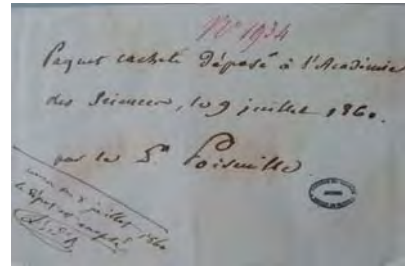 N° 1934
Paquet cacheté déposé à l'Académie
des Sciences, le 9 juillet 1860.
par le Dr Poiseuille
juillet 1860